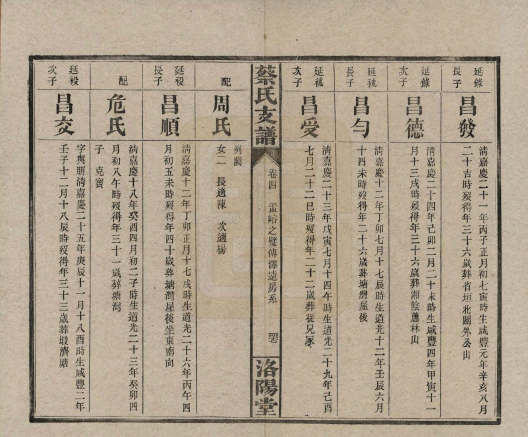 延
長子
昌發
清嘉慶二十一年丙子正月初七寅時生咸豐元年辛亥八月
二十吉時歿得年三十六歲葬省垣北關外公山
延
次子
昌德
清嘉慶二十四年己卯二月二十未時生咸豐四年甲寅十一
月十三戌時歿得年三十六歲葬湘陰蓮林山
延
長子
昌勻
清嘉慶十二年丁卯七月十七辰時生道光十二年壬辰六月
十四未時歿得年二十六歲葬塘灣屋後
延
次子
昌受
清嘉慶二十三年戊寅七月十七寅時生道光二十九年己酉
七月二十二巳時歿得年三十二歲葬
蔡氏支譜
卷四
孟
之
傳澤遠房系
洛陽堂
配
周氏
女二
長適陳
次適楊
延
長子
昌順
清嘉慶十二年丁卯正月十七戌時生道光二十六年丙午四
月初五未時歿得年四十歲葬塘灣屋後坐東南向
配
危氏
清嘉慶十八年癸酉四月初二子時生道光二十三年癸卯四
月初八午時歿得年三十一歲葬塘灣
子
克賓
延
次子
昌交
字與朋清嘉慶二十五年庚辰十一月十八酉時生咸豐二年
壬子十二月十八辰時歿得年三十三歲葬
塘